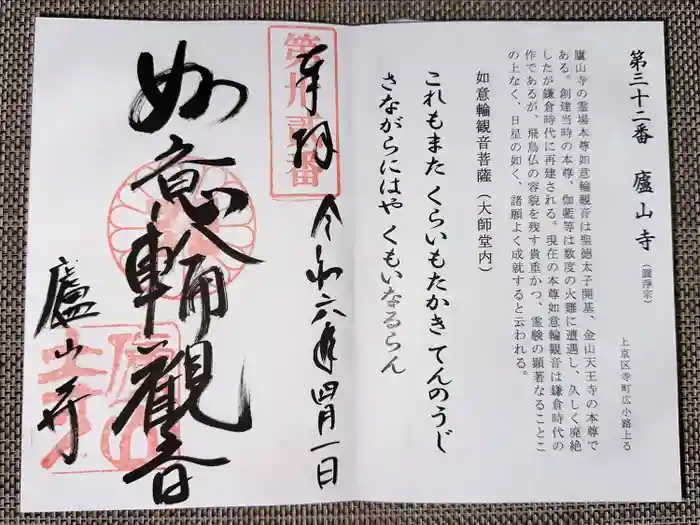 第三十二番 廬山寺(圓浄宗)
上京区寺町広小路上る
廬山寺の霊場本尊如意輪観音は聖徳太子開基、金山天王寺の本尊で
ある。創建当時の本尊、伽藍等は数度の火難に遭遇し、久しく廃絶
したが鎌倉時代に再建される。現在の本尊如意輪観音は鎌倉時代の
作であるが、飛鳥仏の容貌を残す貴重かつ、霊験の顕著なることこ
の上なく、日星の如く、諸願よく成就すると云われる。
如意輪観音菩薩(大師堂内)
これもまた くらいもたかき てんのうじ
さながらにはや くもいなるらん
第卅貳番
奉拝
令和六年四月一日
如意輪観音
廬山寺